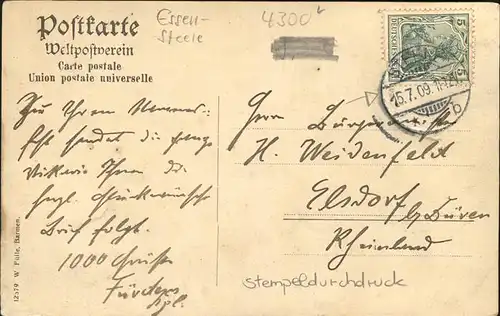 Postkarte
Weltpostverein
Carte postale
Union postale universelle
Essen-
Steele
4300
5 5
DEUTSCHES
15.7.09.
b
Zu Ihrem Namens-
fest sendet die ganze
Ihnen die
herzl. Glückwünsche
Brief folgt.
1000 Grüße
Herrn Bürgermeister
H. Weidenfeld
Elsdorf
b/Düren
Rheinland
Stempeldurchdruck
12579 W. Fülle, Barmen.